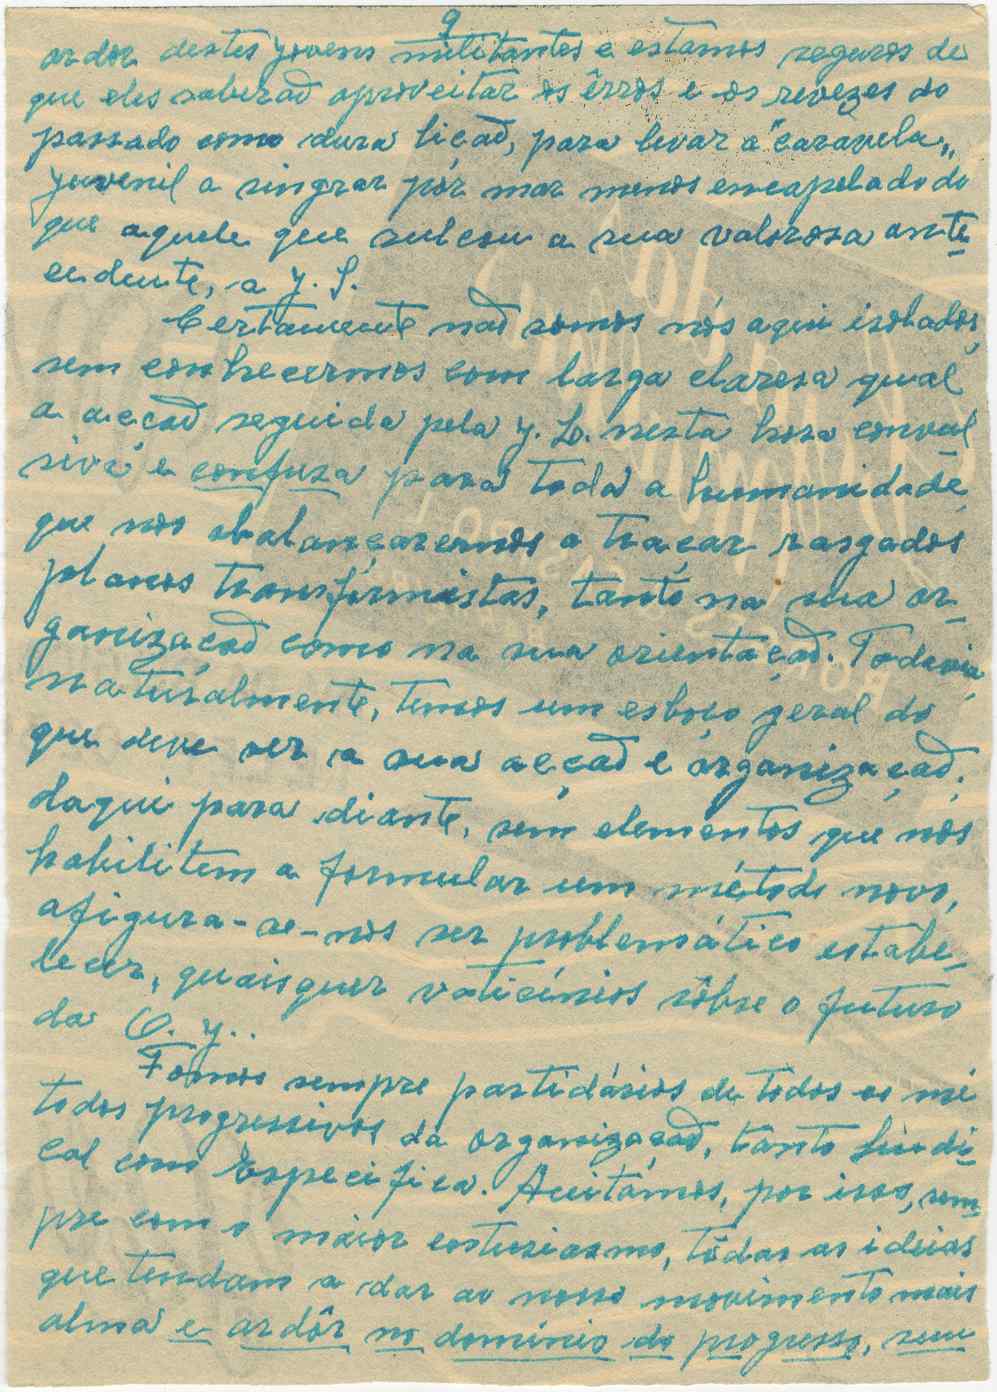 9
ardor destes jovens militantes e estamos seguros de
que eles saberaõ aproveitar os êrros e os revezes do
passado como dura liçaõ, para levar a "caravela„
juvenil a singrar por mar menos encapelado do
que aquele que sulcou a sua valorosa ante
cedente, a J. S.
Certamente naõ somos nós aqui isolados,
sem conhecermos com larga claresa qual
a acçaõ seguida pela J. L. nesta hora convul
siva e confuza para toda a humanidade,
que nos abalançaremos a traçar rasgados
planos transformistas, tanto na sua or-
ganizaçaõ como na sua orientaçaõ. Todavia,
naturalmente, temos um esboço geral do
que deve ser a sua acçaõ e organizaçaõ,
daqui para diante, sem elementos que nos
habilitem a formular um método novo,
afigura-se-nos ser problemático estabe-
lecer, quaisquer vaticínios sôbre o futuro
da O. J..
Fomos sempre partidários de todos os mé
todos progressivos da organizaçaõ, tanto Sindi-
cal como Especifica. Aceitámos, por isso, sem-
pre com o maior entusiasmo, tôdas as ideias
que tendam a dar ao nosso movimento mais
alma e ardôr no dominio do progresso, sem